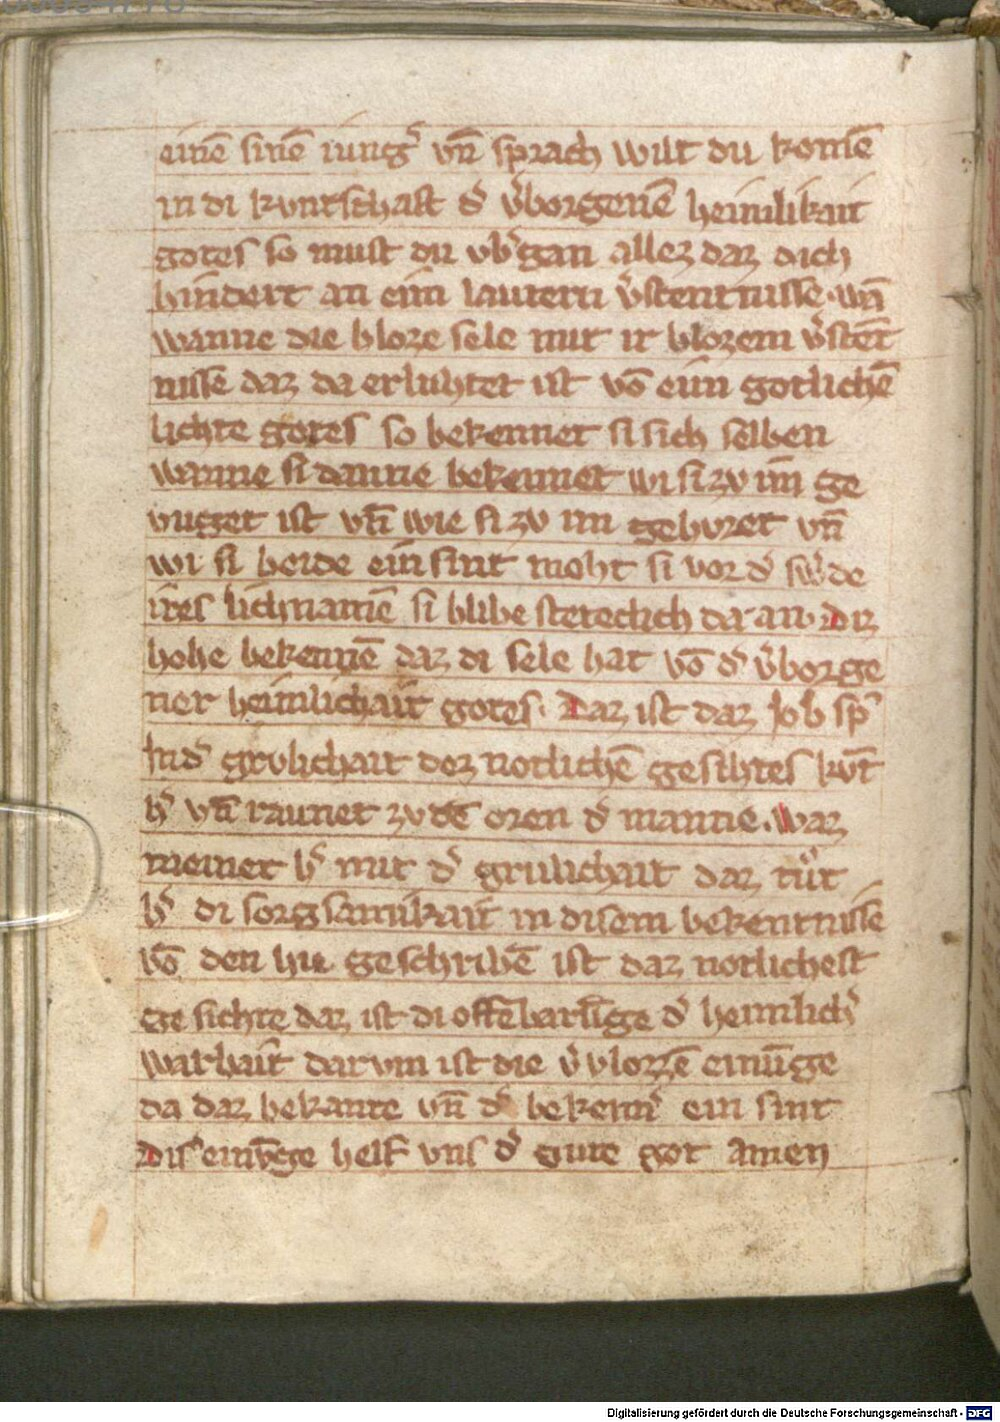 einē sinē iung͛ vn̄ sprach wilt du komē
in di kvntschaft d͛ v͛borgenē heimlikait
gotes so must du vb͛gan allez daz dich
hindert an eim lautern v͛stentnisse · wn̄
wanne die bloze sele mit ir blozem v͛stēt
nisse daz da erluhtet ist vō eim gotlichē
lichte gotes so bekennet si sich selben
wanne si danne bekennet wi si zv im ge
vuget ist vn̄ wie si zv im gehoret vn̄
wi si beide ein sint moht si vor d͛ sw͛de
ires lichnamē si blibe steteclich dar an · Diz
hohe bekennē daz di sele hat vō d͛ v͛borge
ner heimlichait gotes · Daz ist daz Job sp͛
In d͛ grvlichait dez notlichē gesihtes kv̄t
h͛ vn̄ raunet zv dē oren d͛ manne · Waz
meinet h͛ mit d͛ grulichait daz tut
h͛ di sorgsamikait in disem bekentnisse
vō den hie geschribē ist daz notlichest
gesichte daz ist di offēbarūge d͛ heimlich͛
warhait darvm ist die v͛vlozzē einūge
da daz bekante vn̄ d͛ bekenn͛ ein sint
Dis͛ einv̄ge helf vns d͛ gute got Amen
Digitalisierung gefördert durch die Deutsche Forschungsgemeinschaft - DFG